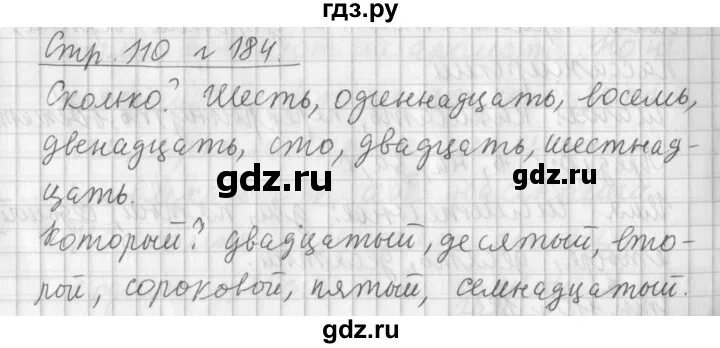 гдз.ру
Стр. 110 г 184.
Сколько? Шесть, одиннадцать, восемь,
двенадцать, сто, двадцать, шестнад-
цать.
gdz.ru
gdz.ru
Который? двадцатый, десятый, вто-
рой, сороковой, пятый, семнадцатый.
gdz.ru